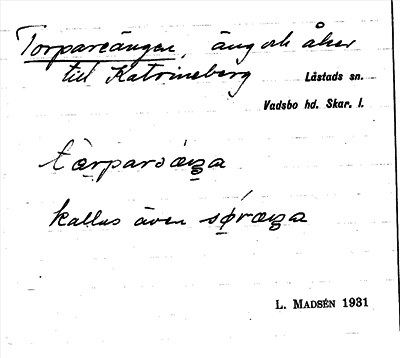 Torpareängen, äng och åker
till Katrineberg Låstads sn.
Vadsbo hd. Skar. l.
tàrparəæŋa
kallas även sǿræŋa
L. MADSÉN 1931